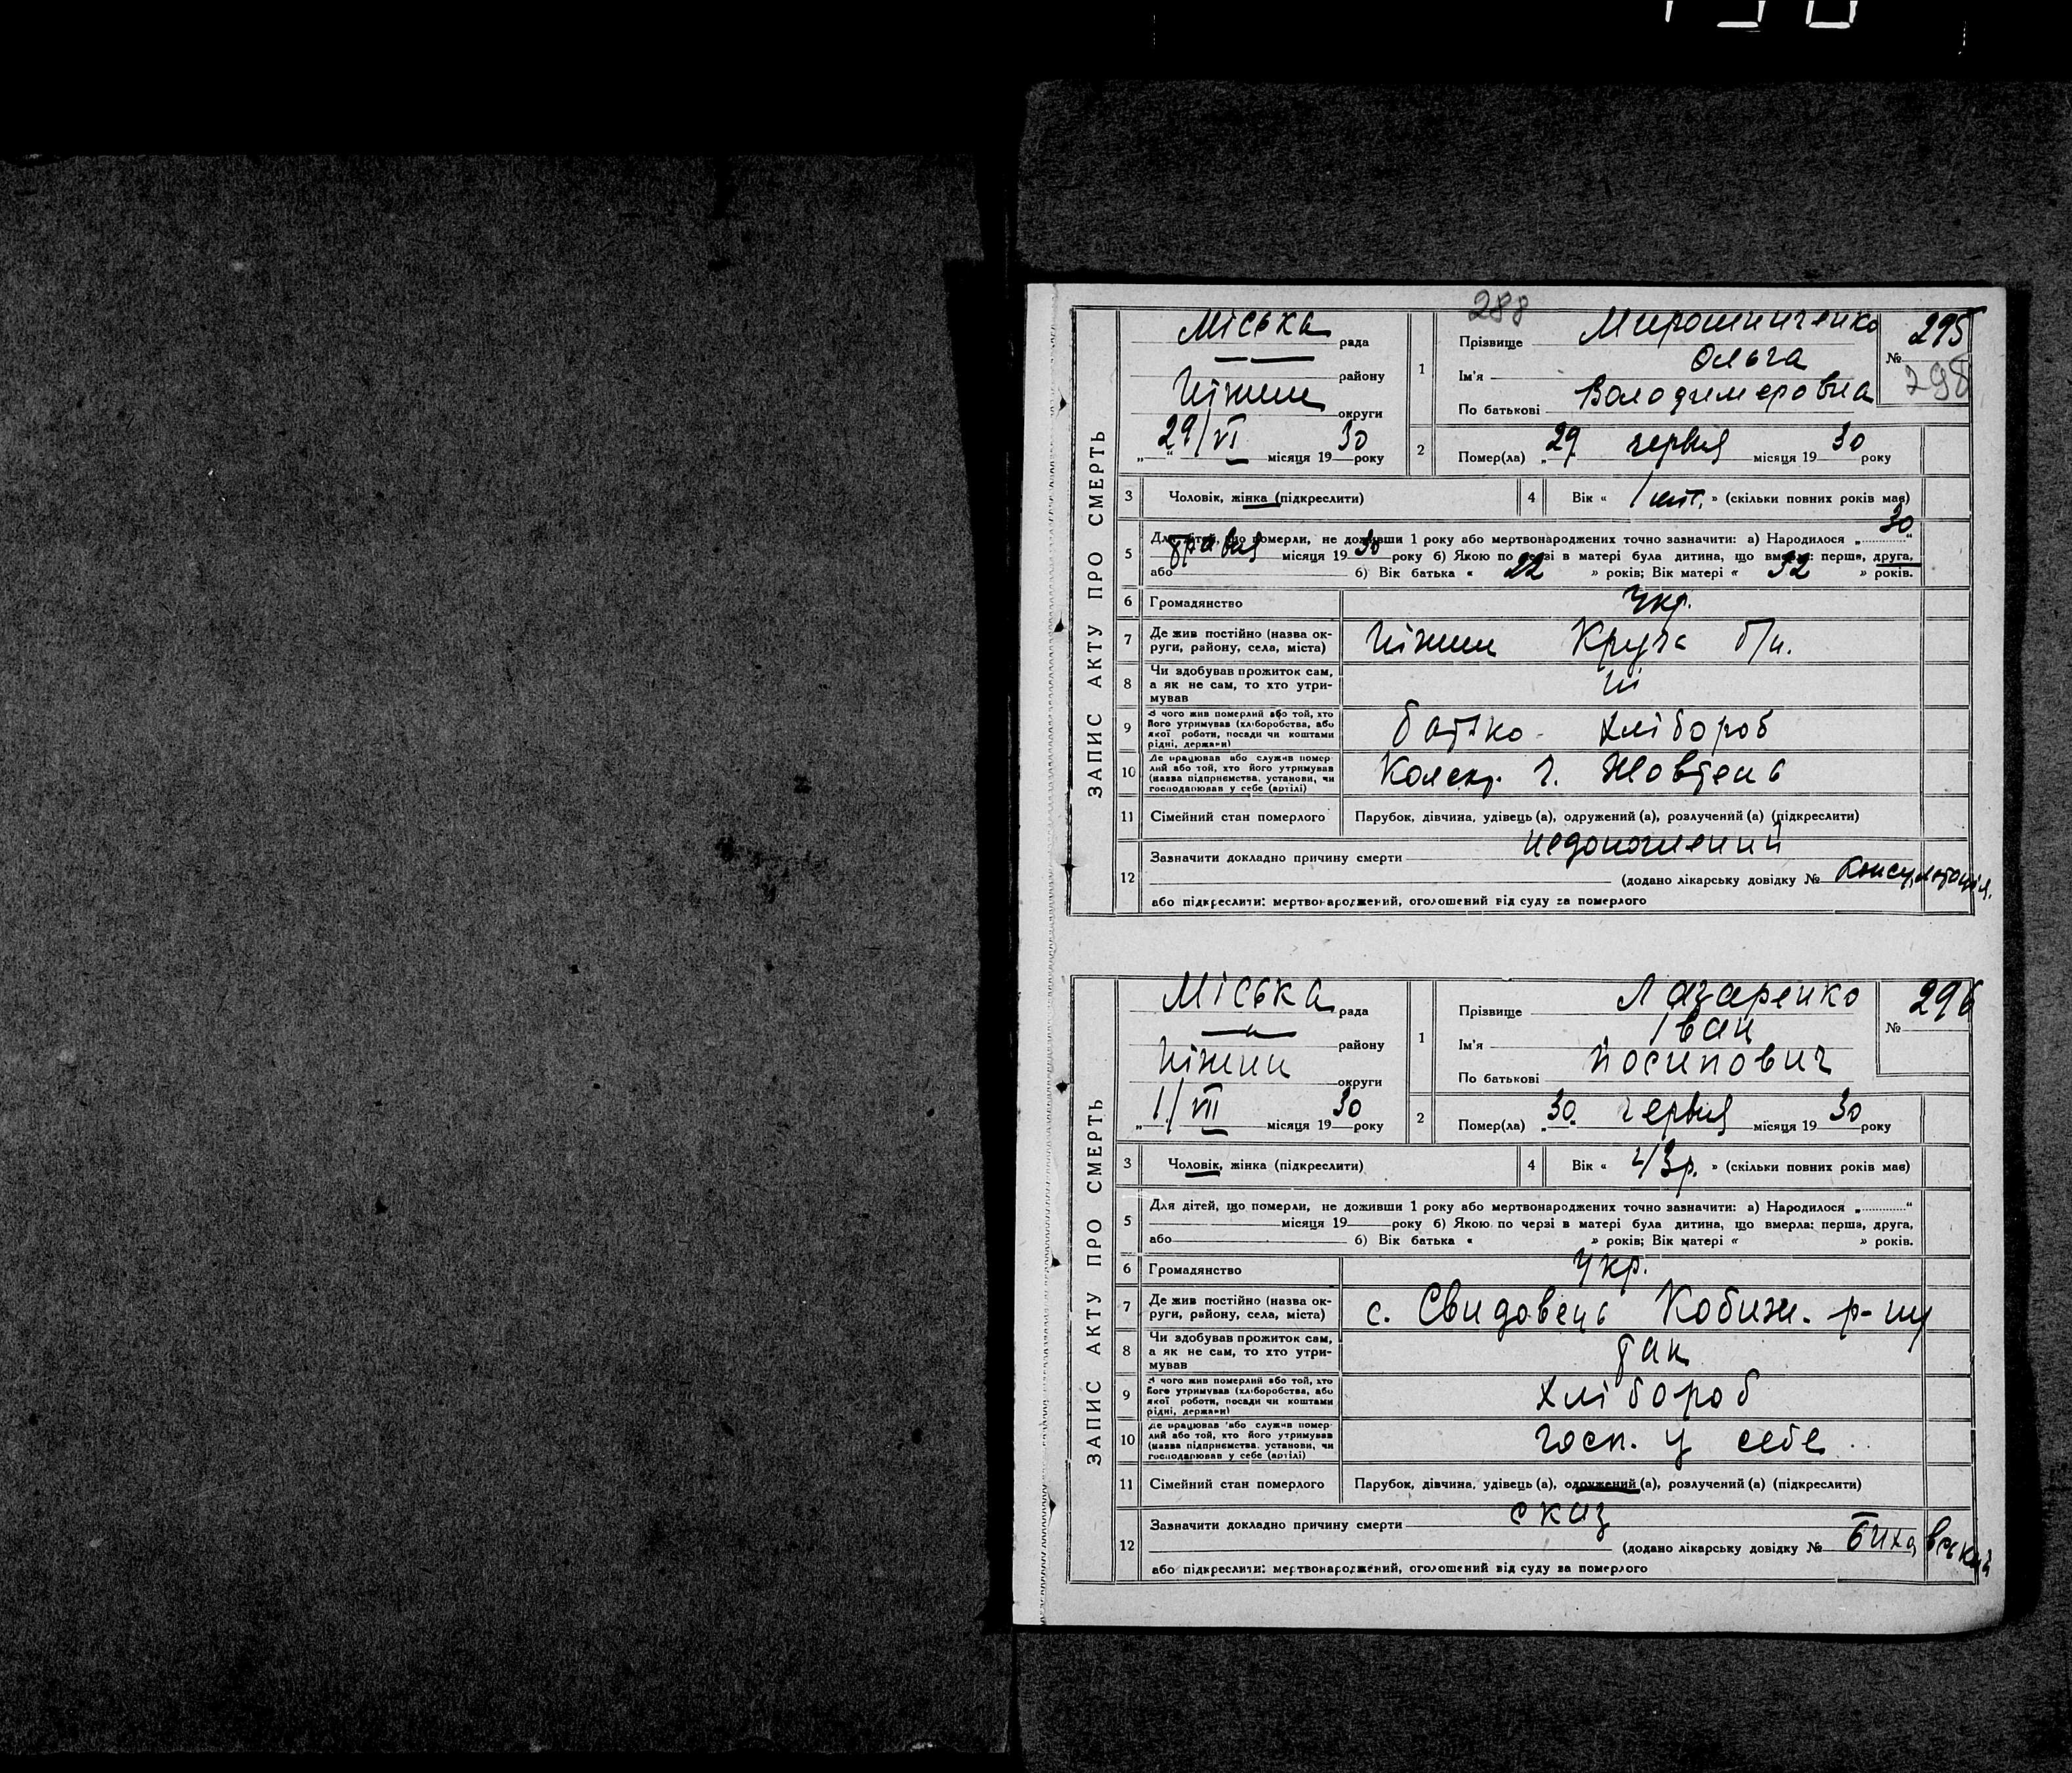 288
ЗАПИС АКТУ ПРО СМЕРТЬ
Міська рада
району
Ніжин округи
„29/VI“ місяця 1930 року
1 Прізвище Мирошниченко
Ім'я Ольга
По батькові Володимеровна
№ 295
298
2 Помер(ла) „29“ червня місяця 1930 року
3 Чоловік, жінка (підкреслити)
4 Вік « 1 міс. » (скільки повних років має)
5 Для дітей, що померли, не доживши 1 року або мертвонароджених точно зазначити: а) Народилося „30“
травня місяця 1930 року б) Якою по черзі в матері була дитина, що вмерла: перша, друга,
або б) Вік батька « 22 » років; Вік матері « 32 » років.
6 Громадянство Укр.
7 Де жив постійно (назва округи, району, села, міста) Ніжин Круча б/н.
8 Чи здобував прожиток сам, а як не сам, то хто утримував Ні
9 З чого жив померлий або той, хто його утримував (хліборобства, або якої роботи, посади чи коштами рідні, держави) батько - хлібороб
10 Де працював або служив померлий або той, хто його утримував (назва підприємства, установи, чи господарював у себе (артілі) Жовтень
11 Сімейний стан померлого Парубок, дівчина, удівець (а), одружений (а), розлучений (а) (підкреслити)
12 Зазначити докладно причину смерти недоношений
(додано лікарську довідку № Консультація.
або підкреслити: мертвонароджений, оголошений від суду за померлого
ЗАПИС АКТУ ПРО СМЕРТЬ
Міська рада
району
Ніжин округи
„1/VII“ місяця 1930 року
1 Прізвище Лазаренко
Ім'я Іван
По батькові Йосипович
№ 296
2 Помер(ла) „30“ червня місяця 1930 року
3 Чоловік, жінка (підкреслити)
4 Вік « 43 р. » (скільки повних років має)
5 Для дітей, що померли, не доживши 1 року або мертвонароджених точно зазначити: а) Народилося „ “
місяця 19 року б) Якою по черзі в матері була дитина, що вмерла: перша, друга,
або б) Вік батька « » років; Вік матері « » років.
6 Громадянство Укр.
7 Де жив постійно (назва округи, району, села, міста) с. Свидовець Кобиж. р-ну
8 Чи здобував прожиток сам, а як не сам, то хто утримував так
9 З чого жив померлий або той, хто його утримував (хліборобства, або якої роботи, посади чи коштами рідні, держави) хлібороб
10 Де працював або служив померлий або той, хто його утримував (назва підприємства, установи, чи господарював у себе (артілі) госп. у себе
11 Сімейний стан померлого Парубок, дівчина, удівець (а), одружений (а), розлучений (а) (підкреслити)
12 Зазначити докладно причину смерти сказ
(додано лікарську довідку №
або підкреслити: мертвонароджений, оголошений від суду за померлого